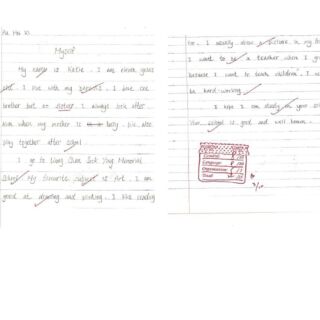 Myself
My name is Katie. I am eleven years
old. I live with my parents. I have one
brother but no sister. I always look after
him when my mother is busy. We also
play together after school.
I go to Wong Chan Sook Ying Memorial
School. My favourite subject is Art. I am
good at drawing and painting. I like reading
too. I usually draw a picture in my
I want to be a teacher when I
because I want to teach children. I
be hard-working.
I hope I can study in your
Your school is good and well known.
Content
Language
Organization
Total